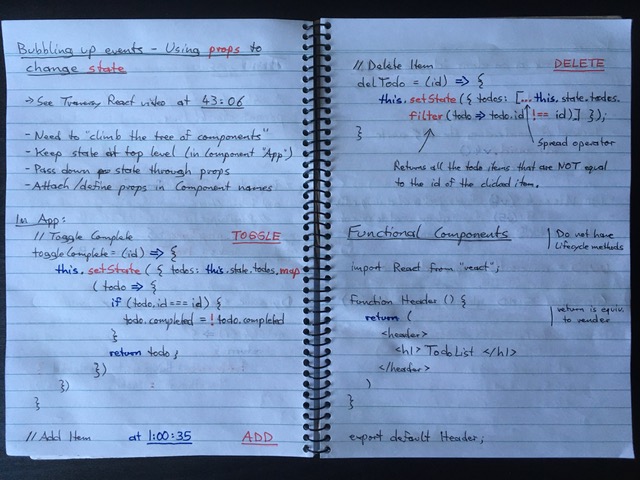 Bubbling up events - Using props to
change state
→ See Traversy React video at 43:06
- Need to "climb the tree of components"
- Keep state at top level (in Component 'App')
- Pass down state through props
- Attach/define props in Component names
In App:
// Toggle Complete TOGGLE
toggleComplete = (id) => {
this.setState ( { todos: this.state.todos.map
( todo => {
if (todo.id === id) {
todo.completed = ! todo.completed
}
return todo;
})
})
}
// Add Item at 1:00:35 ADD
// Delete Item DELETE
delTodo = (id) => {
this.setState ({ todos: [...this.state.todos.
filter(todo => todo.id !== id)] });
}
Spread operator
Returns all the todo items that are NOT equal
to the id of the clicked item.
Functional Components
Do not have
Lifecycle methods
import React from "react";
function Header () {
return (
return is equiv.
to render
<header>
<h1> TodoList </h1>
</header>
)
}
export default Header;